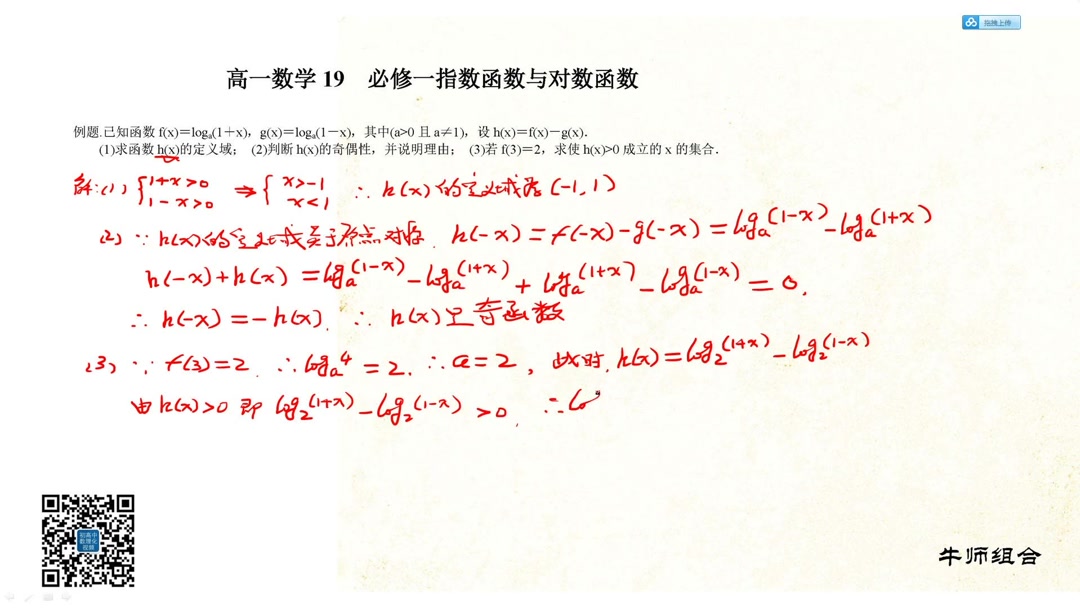 拖拽上传
高一数学 19 必修一指数函数与对数函数
例题.已知函数 f(x)＝logₐ(1＋x)，g(x)＝logₐ(1－x)，其中(a>0 且 a≠1)，设 h(x)＝f(x)－g(x)．
(1)求函数 h(x)的定义域； (2)判断 h(x)的奇偶性，并说明理由； (3)若 f(3)＝2，求使 h(x)>0 成立的 x 的集合．
解:(1) { 1+x>0 1-x>0 ⇒ { x>-1 x<1 ∴ h(x)的定义域为(-1,1)
(2) ∵ h(x)的定义域关于原点对称. h(-x)=f(-x)-g(-x)=logₐ(1-x)-logₐ(1+x)
h(-x)+h(x)=logₐ(1-x)-logₐ(1+x)+logₐ(1+x)-logₐ(1-x)=0.
∴ h(-x)=-h(x). ∴ h(x)是奇函数
(3) ∵ f(3)=2. ∴ logₐ4=2. ∴ a=2, 此时, h(x)=log₂(1+x)-log₂(1-x)
由 h(x)>0 即 log₂(1+x)-log₂(1-x)>0, ∴ lo
初高中
数理化
视频
牛师组合